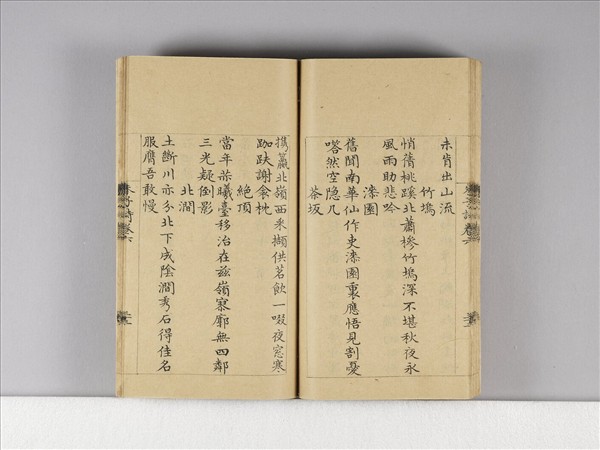 未肯出山流
竹塢
悄蒨桃蹊北蕭槮竹塢深不堪秋夜永
風雨助悲吟
漆園
舊聞南華仙作吏漆園裏應悟見割憂
嗒然空隐几
茶坂
擕籯北嶺西采擷供茗飲一啜夜窓寒
跏趺謝衾枕
絶頂
當年赫曦臺移治在兹嶺寥廓無四鄰
三光疑倒影
北澗
土斷川亦分北下成陰澗秀石得佳名
服膺吾敢慢